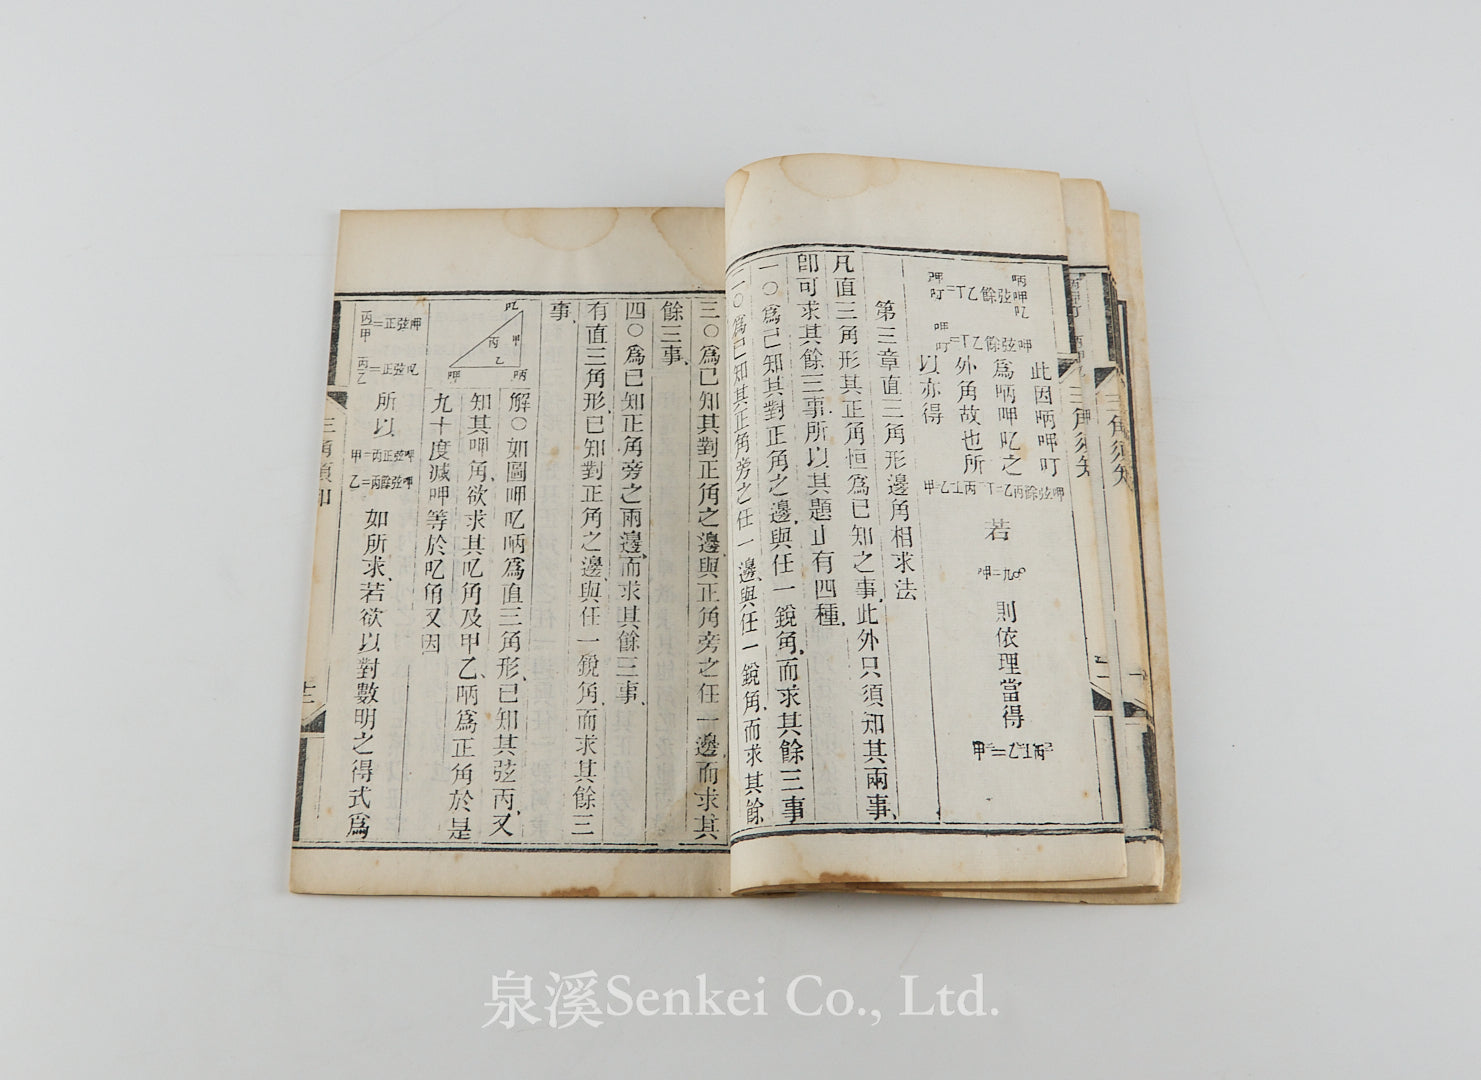 此因㕫呷叮
為㕫呷𠮙之
外角故也所
以亦得
若
則依理當得
第三章直三角形邊角相求法
凡直三角形其正角恒為已知之事此外只須知其兩事、
卽可求其餘三事所以其題止有四種、
一〇為已知其對正角之邊與任一銳角、而求其餘三事
二〇為已知其正角旁之任一邊、與任一銳角、而求其餘
三〇為已知其對正角之邊、與正角旁之任一邊而求其
餘三事、
四〇為已知正角旁之兩邊、而求其餘三事、
有直三角形、已知對正角之邊、與任一銳角、而求其餘三
事、
解〇如圖呷𠮙㕫為直三角形、已知其弦丙、又
知其呷角、欲求其𠮙角及甲乙、㕫為正角於是
九十度減呷等於𠮙角又因
所以
甲=丙正弦呷
乙=丙餘弦呷
如所求、若欲以對數明之得式為
三角須知
十二
三角須知
三角須知
泉溪Senkei Co., Ltd.